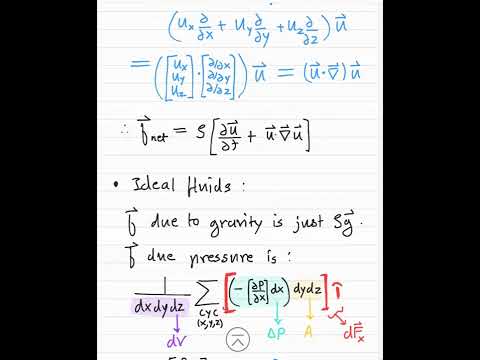 (uₓ ∂/∂x + u_y ∂/∂y + u_z ∂/∂z) u⃗
= ([uₓ u_y u_z] · [∂/∂x ∂/∂y ∂/∂z]) u⃗ = (u⃗·∇⃗) u⃗
∴ f⃗_net = ρ[∂u⃗/∂t + u⃗·∇⃗u⃗]
• Ideal fluids:
f⃗ due to gravity is just ρg⃗.
f⃗ due pressure is:
1/(dx dy dz) Σ_{cyc (x,y,z)} [(-[∂P/∂x]dx) dydz] î
dV ΔP A dF⃗ₓ